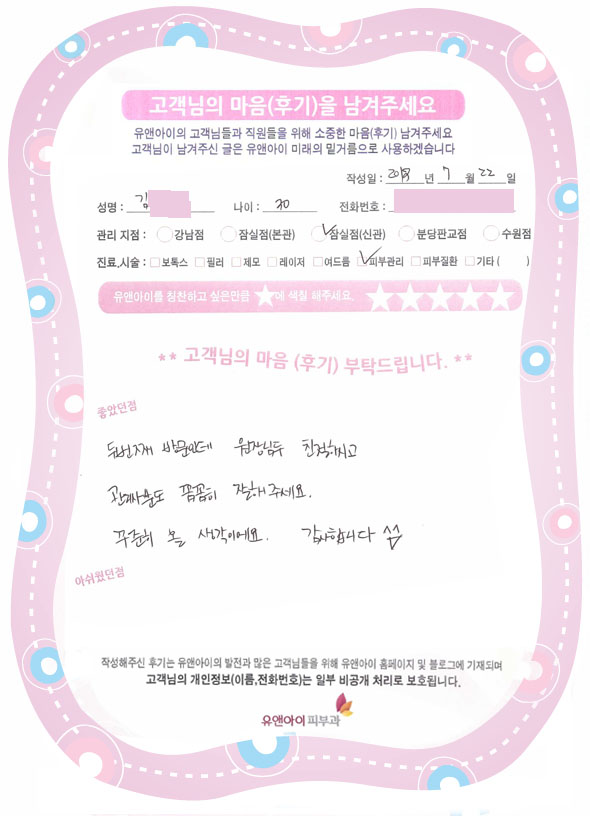 고객님의 마음(후기)을 남겨주세요
유앤아이의 고객님들과 직원들을 위해 소중한 마음(후기) 남겨주세요
고객님이 남겨주신 글은 유앤아이 미래의 밑거름으로 사용하겠습니다
작성일 : 2018 년 7 월 22 일
성명 : 김 나이 : 30 전화번호 :
관리 지점 : 강남점 잠실점(본관) 잠실점(신관) 분당판교점 수원점
진료,시술 : 보톡스 필러 제모 레이저 여드름 피부관리 피부질환 기타 ( )
유앤아이를 칭찬하고 싶은만큼 ★에 색칠 해주세요. ★★★★★
** 고객님의 마음 (후기) 부탁드립니다. **
좋았던점
두번째 방문인데 원장님두 친절하시고
관리사분도 꼼꼼히 잘해주세요.
꾸준히 올 생각이에요. 감사합니다 ^^
아쉬웠던점
작성해주신 후기는 유앤아이의 발전과 많은 고객님들을 위해 유앤아이 홈페이지 및 블로그에 기재되며
고객님의 개인정보(이름,전화번호)는 일부 비공개 처리로 보호됩니다.
유앤아이피부과